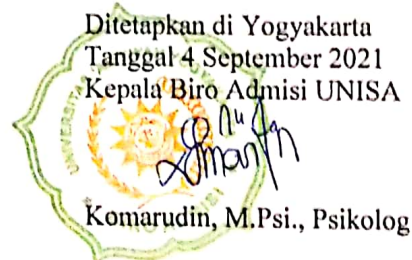 Ditetapkan di Yogyakarta
Tanggal 4 September 2021
Kepala Biro Admisi UNISA
Komarudin, M.Psi., Psikolog